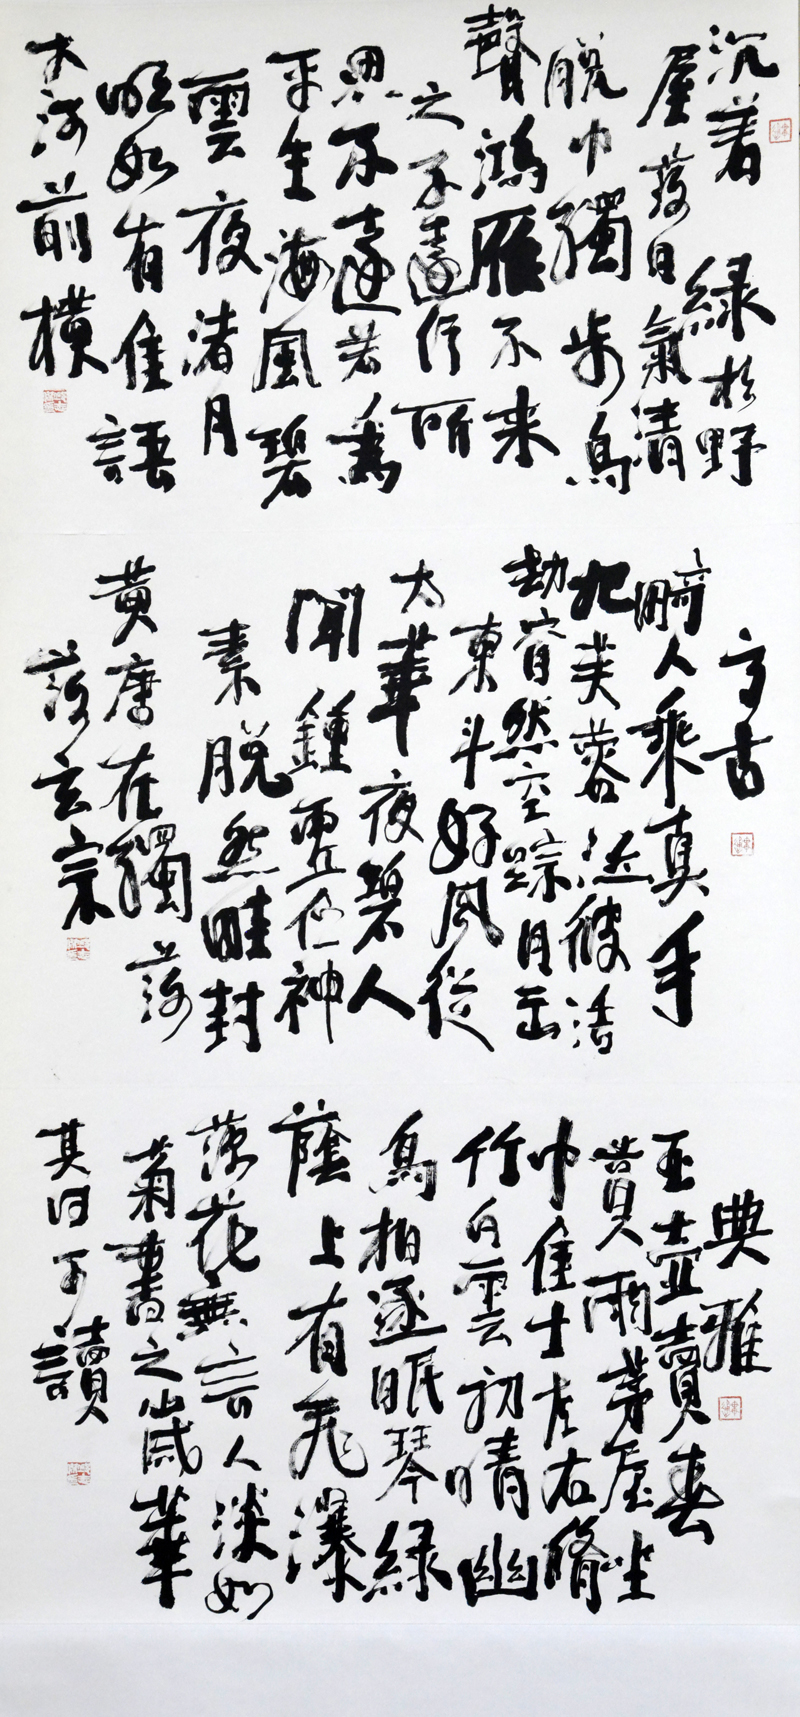 沉著 綠杉野
屋落日氣清
脫巾獨步鳥
聲鴻雁不来
之子遠行所
思不遠若為
平生海風碧
雲夜渚月
明如有佳語
大河前橫
高古
畸人乘真手
把芙蓉泛彼浩
劫窅然空蹤月出
東斗好風從
太華夜碧人
聞鍾虛佇神
素脫然畦封
黃唐在獨落
落玄宗
典雅
玉壺賣春
賞雨茅屋坐
中佳士左右脩
竹白雲初晴幽
鳥相逐眠琴綠
蔭上有飛瀑
落花無言人淡如
菊書之歲華
其曰可讀